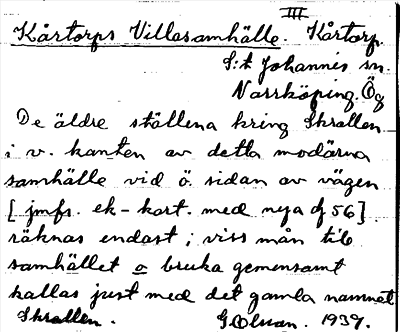 III
Kårtorps Villasamhälle. Kårtorp.
S:t Johannis sn
Norrköping. Ög
De äldre ställena kring Skrallen
i v. kanten av detta modärna
samhälle vid ö. sidan av vägen
[jmfs. ek-kart. med nya df 56]
räknas endast i viss mån till
samhället o bruka gemensamt
kallas just med det gamla namnet
Skrallen. G. Olson. 1939.